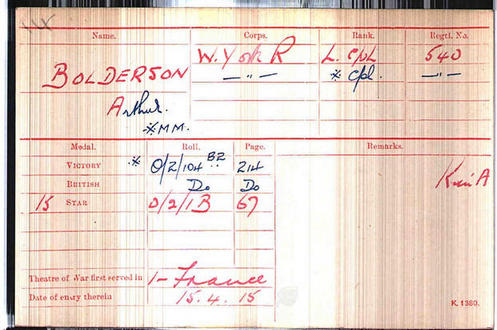 Name. Corps. Rank. Regtl. No.
BOLDERSON W. York R L. Cpl 540
Arthur. — " — * Cpl. — " —
*MM.
Medal. Roll. Page. Remarks.
VICTORY * O/2/104 B2 214
BRITISH Do Do
15 STAR O/2/1B 67
Theatre of War first served in 1 - France
Date of entry therein 15.4.15
K 1380.